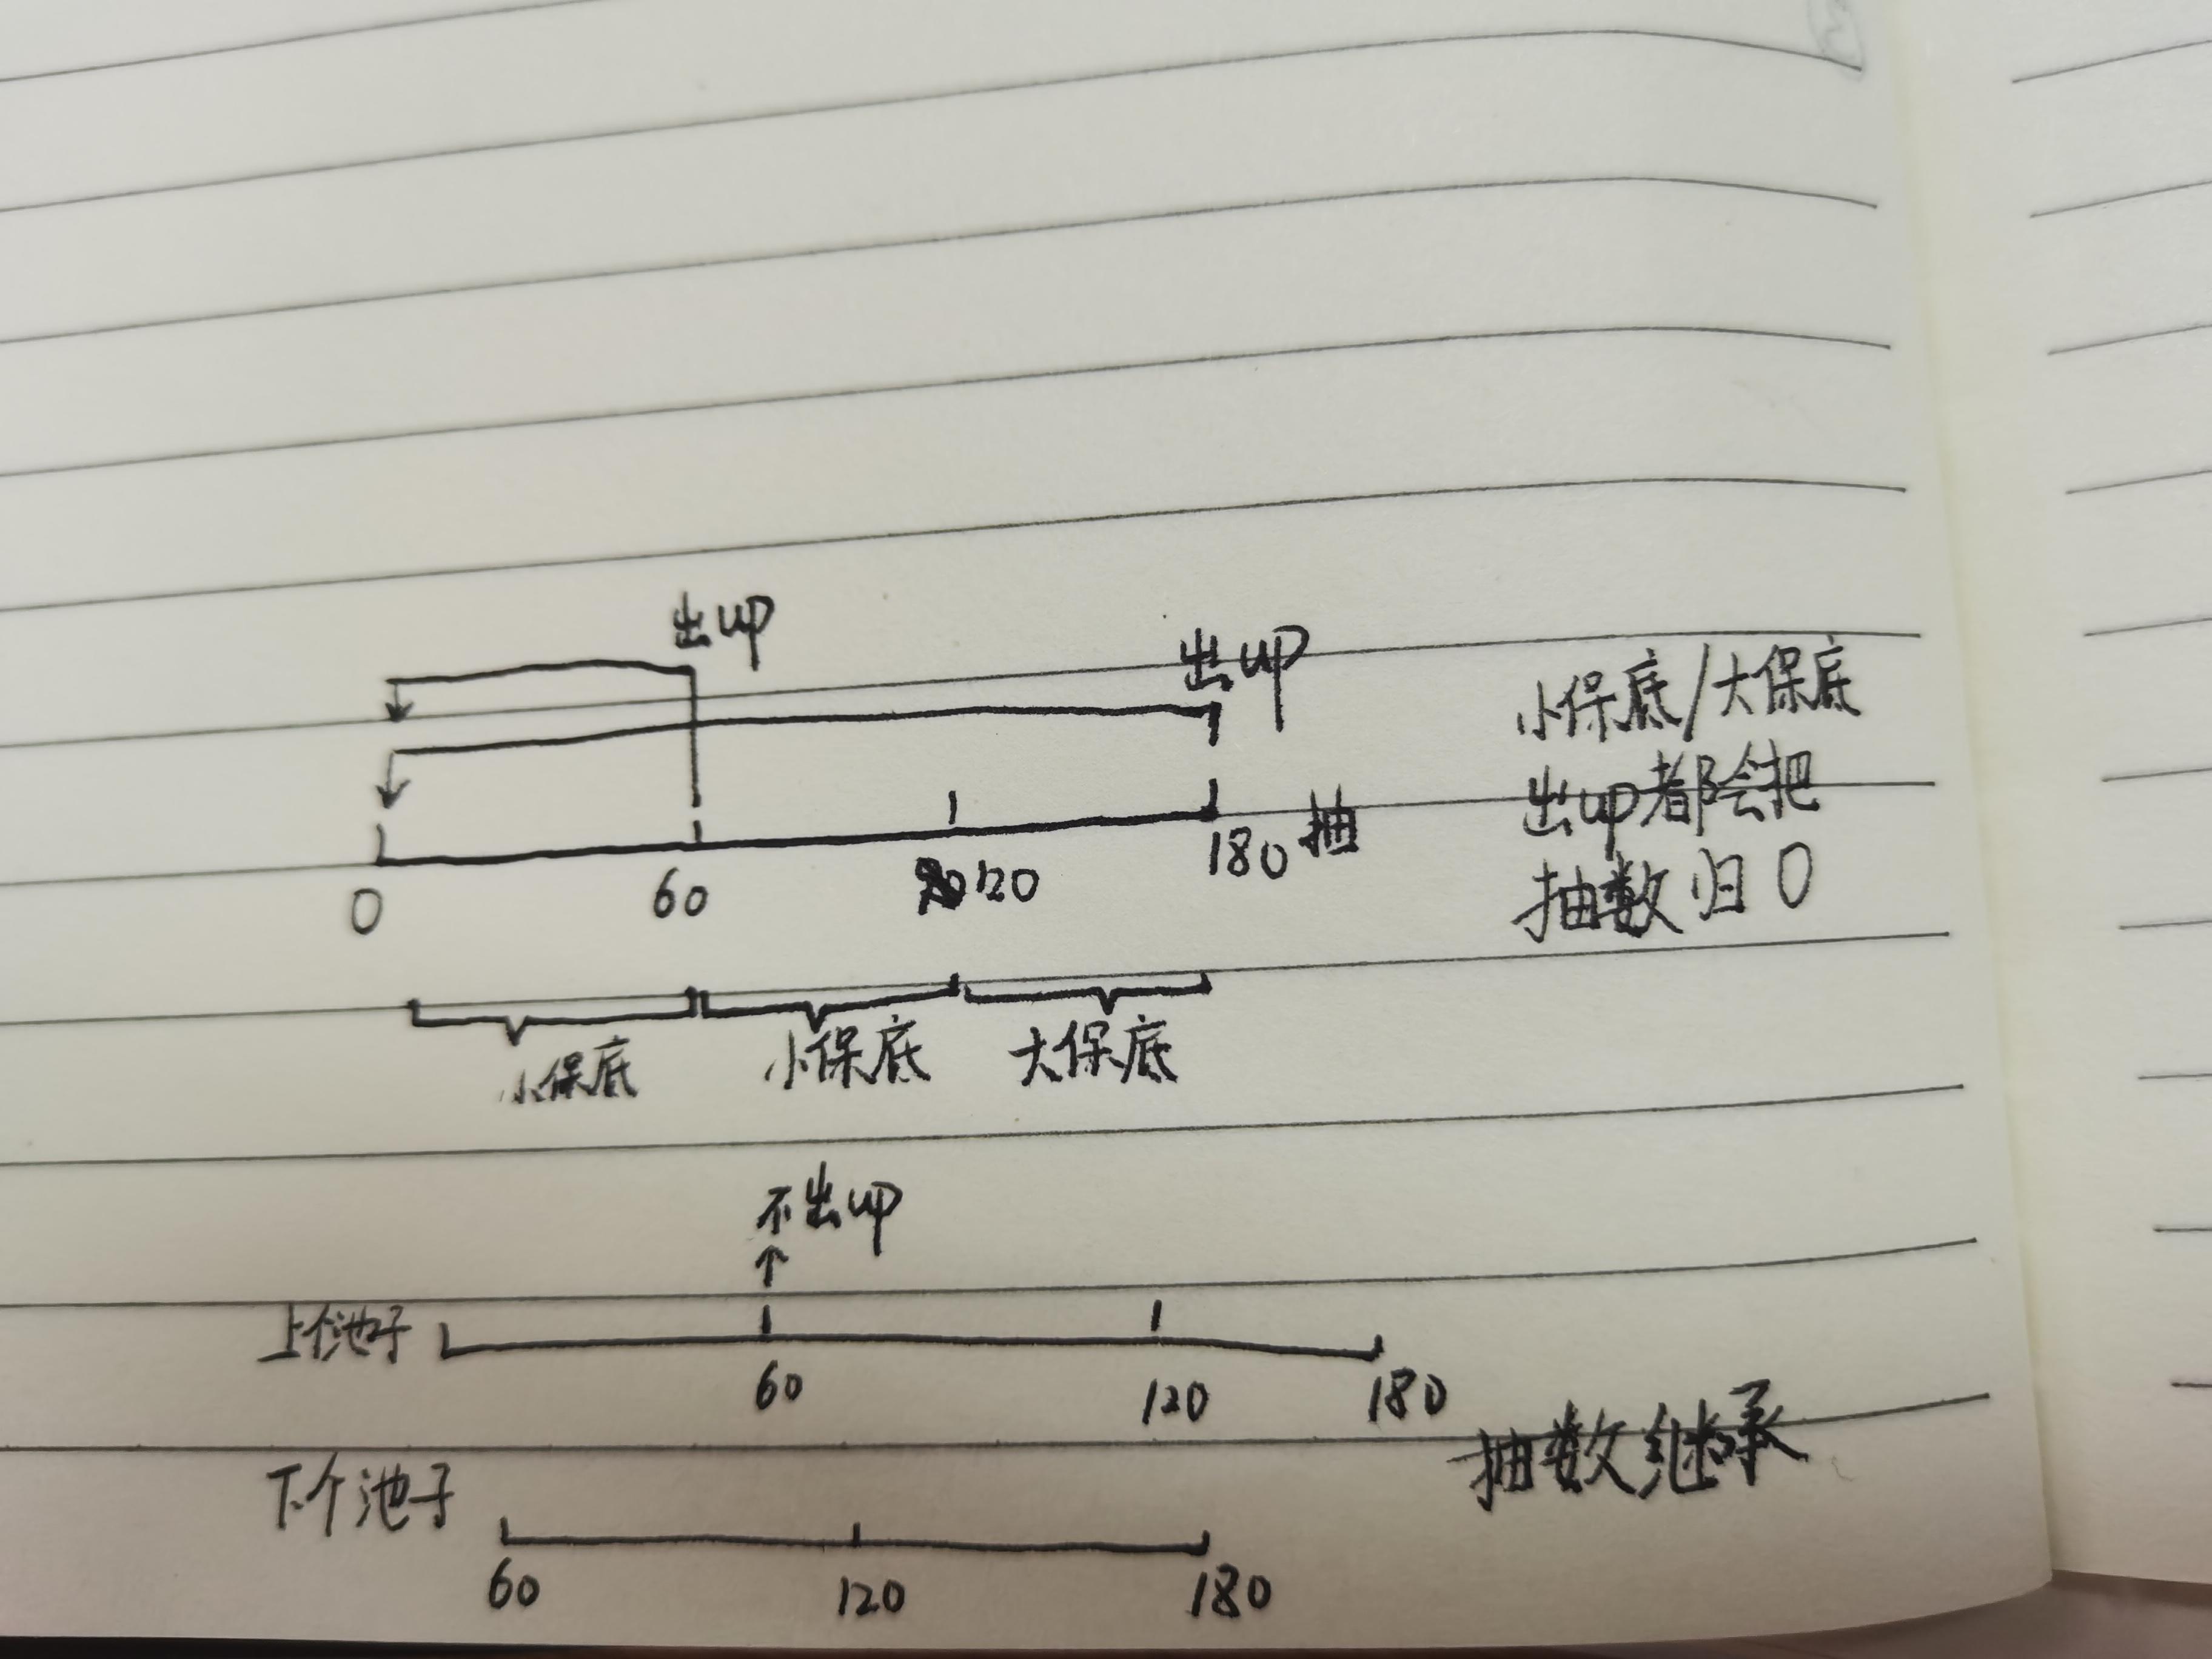 出up
出up
小保底/大保底
出up都会把
抽数归0
0 60 120 180抽
小保底 小保底 大保底
不出up
上个池子
60 120 180
抽数继承
下个池子
60 120 180